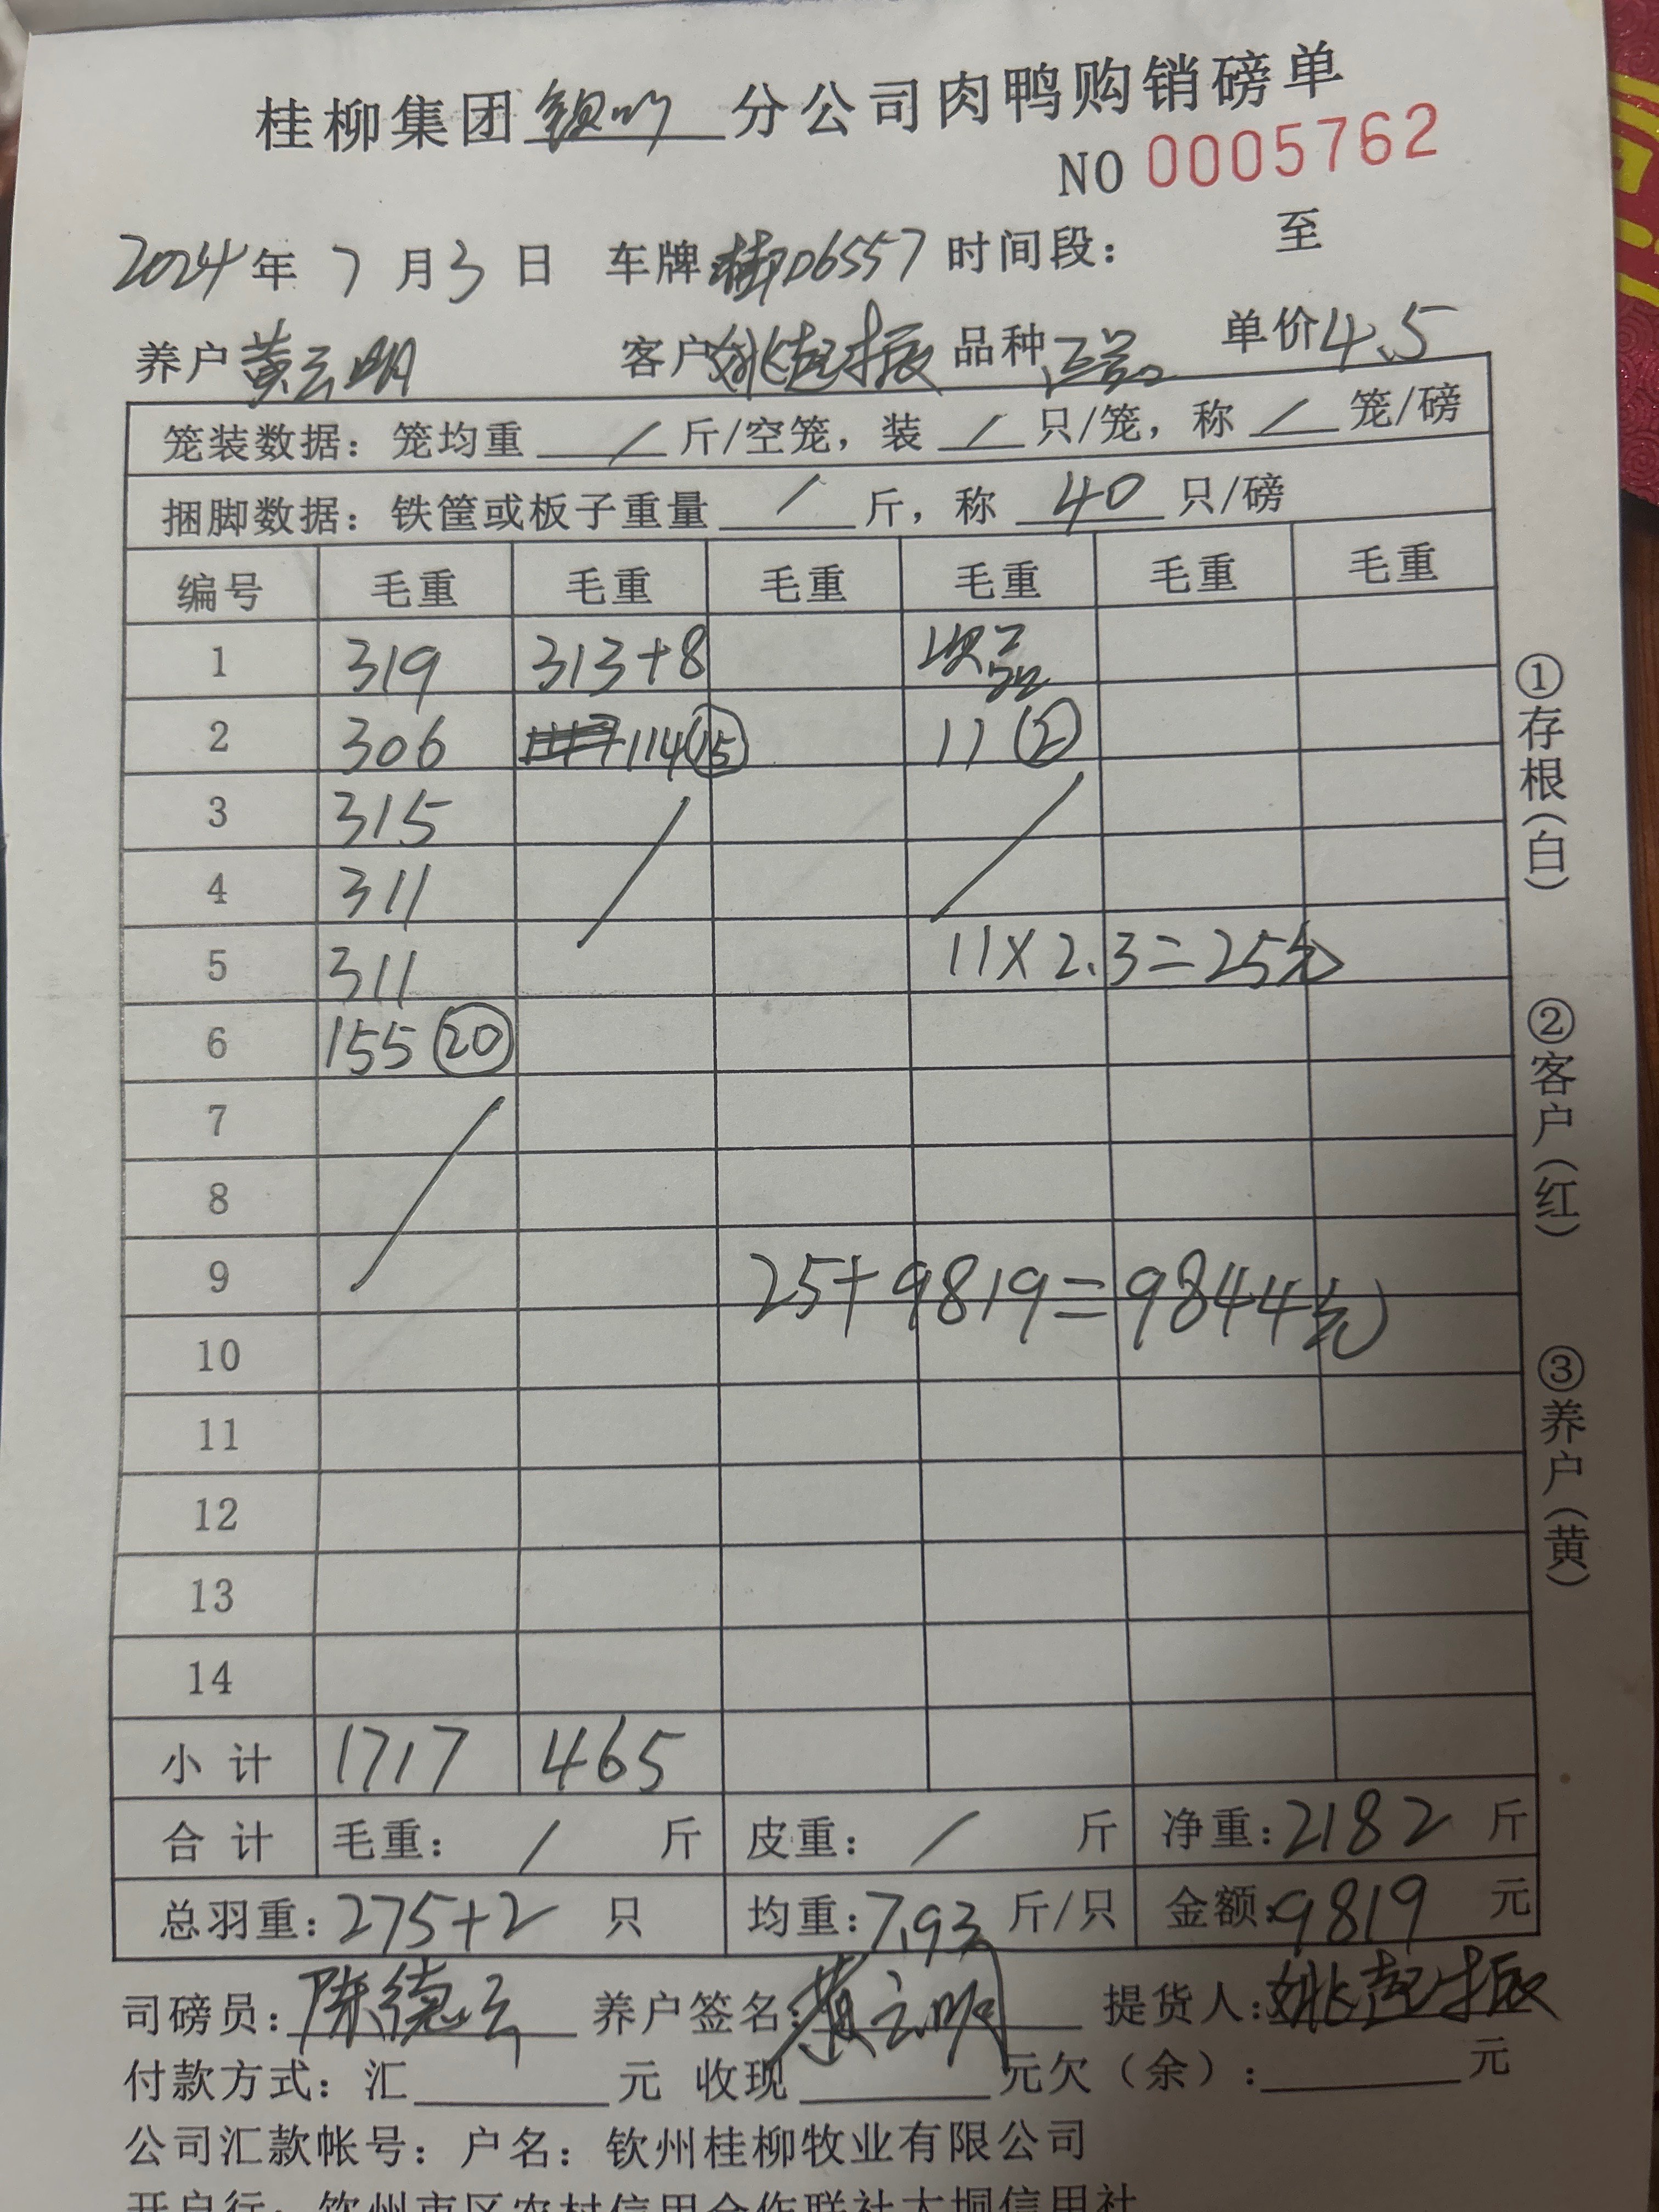 桂柳集团钦州分公司肉鸭购销磅单
NO 0005762
2024年 7 月 3 日 车牌桂D6557 时间段： 至
养户黄云明 客户姚起振 品种正品 单价4.5
笼装数据：笼均重 / 斤/空笼，装 / 只/笼，称 / 笼/磅
捆脚数据：铁筐或板子重量 / 斤，称 40 只/磅
编号 毛重 毛重 毛重 毛重 毛重 毛重
1 319 313+8 次品
2 306 114⑮ 11②
3 315
4 311
5 311 11×2.3=25元
6 155⑳
7
8
9 25+9819=9844元
10
11
12
13
14
小 计 1717 465
合 计 毛重： / 斤 皮重： / 斤 净重：2182 斤
总羽重：275+2 只 均重：7.93 斤/只 金额：9819 元
司磅员：陈德云 养户签名：黄云明 提货人：姚起振
付款方式：汇 元 收现 元欠（余）： 元
公司汇款帐号：户名：钦州桂柳牧业有限公司
开户行：钦州市区农村信用合作联社大垌信用社
①存根（白）
②客户（红）
③养户（黄）